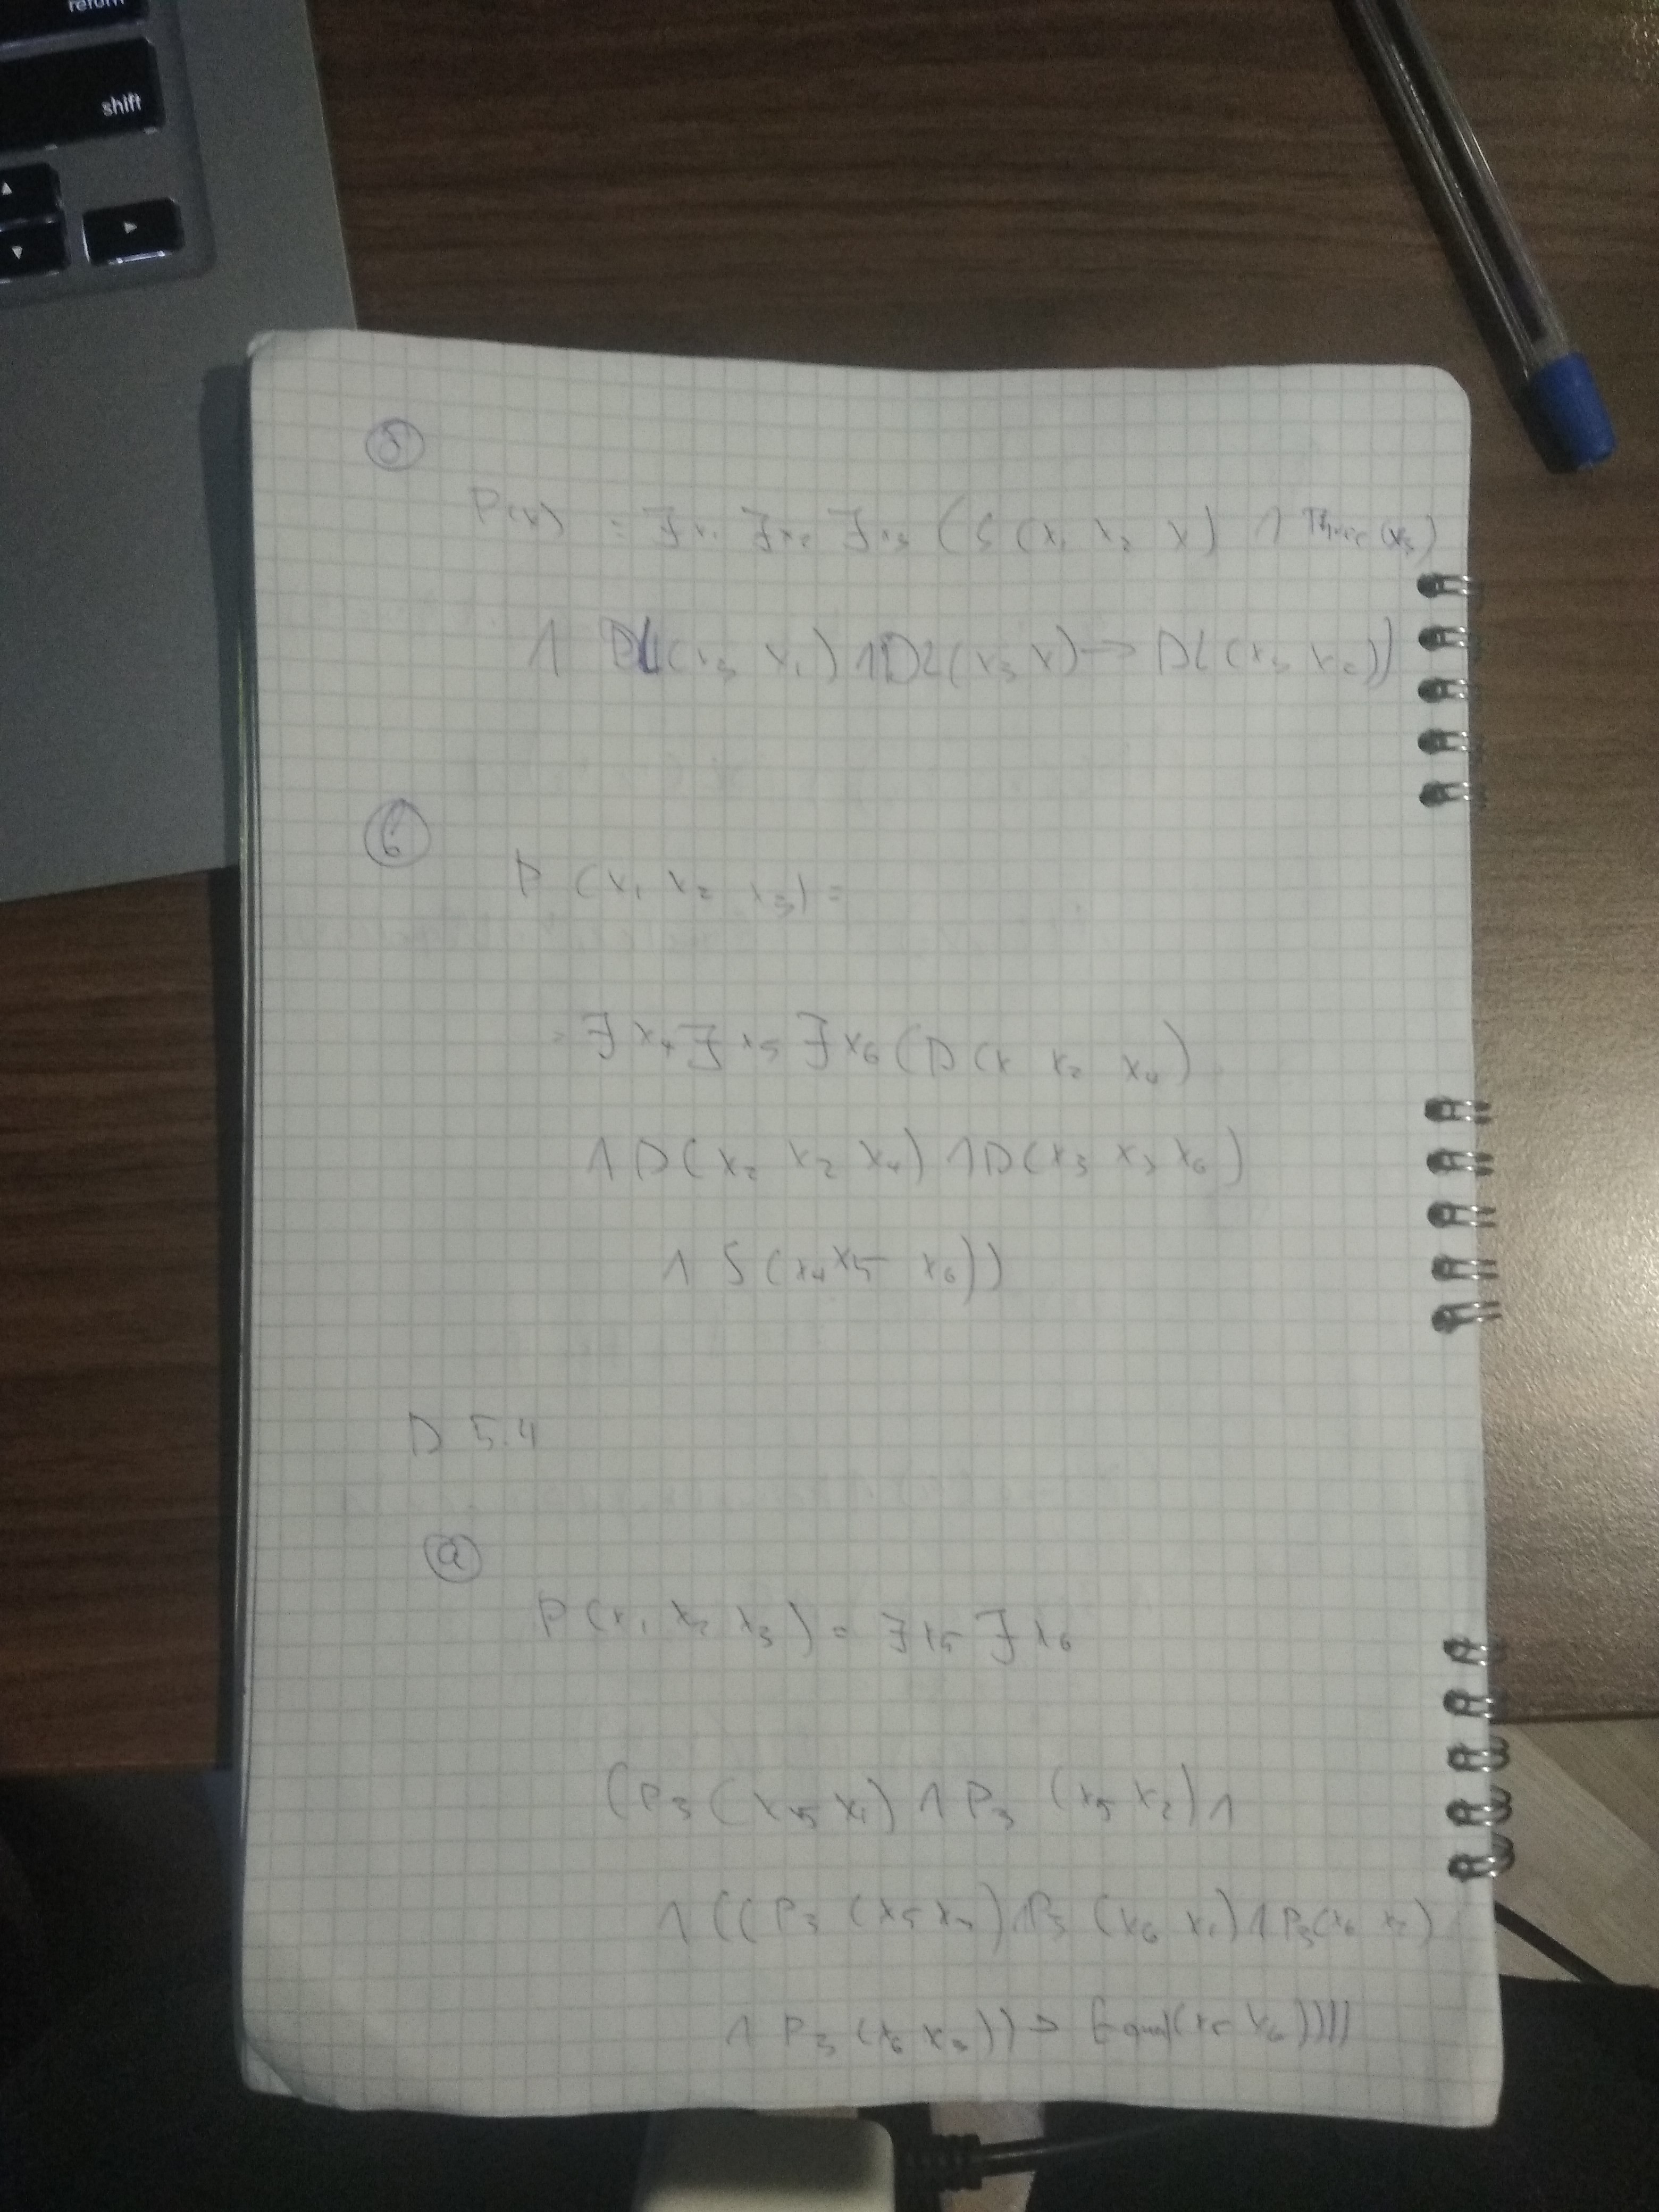 return
shift
б
P(x) = ∃x₁ ∃x₂ ∃x₃ (S (x₁ x₂ x) ∧ Three(x₃)
∧ DL(x₃ x₁) ∧ DL(x₃ x) → DL(x₃ x₂))
в
P (x₁ x₂ x₃) =
= ∃x₄ ∃x₅ ∃x₆ (D(x x₂ x₄)
∧ D(x₂ x₂ x₄) ∧ D(x₃ x₃ x₆)
∧ S(x₄ x₅ x₆))
D 5.4
a
P(x₁ x₂ x₃) = ∃x₅ ∃x₆
(P₃(x₅ x₁) ∧ P₃ (x₅ x₂) ∧
∧ ((P₃ (x₅ x₃) ∧ P₃ (x₆ x₁) ∧ P₃(x₆ x₂)
∧ P₃ (x₆ x₃)) → Equal(x₅ x₆))))